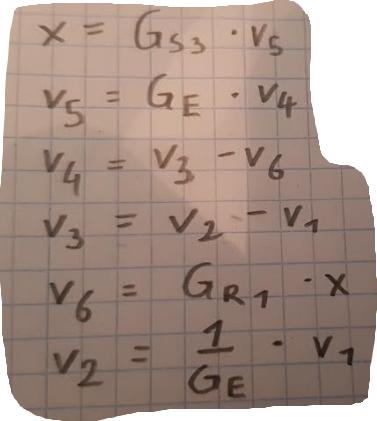 x = G_S3 · v_5
v_5 = G_E · v_4
v_4 = v_3 - v_6
v_3 = v_2 - v_1
v_6 = G_R1 · x
v_2 = 1/G_E · v_1